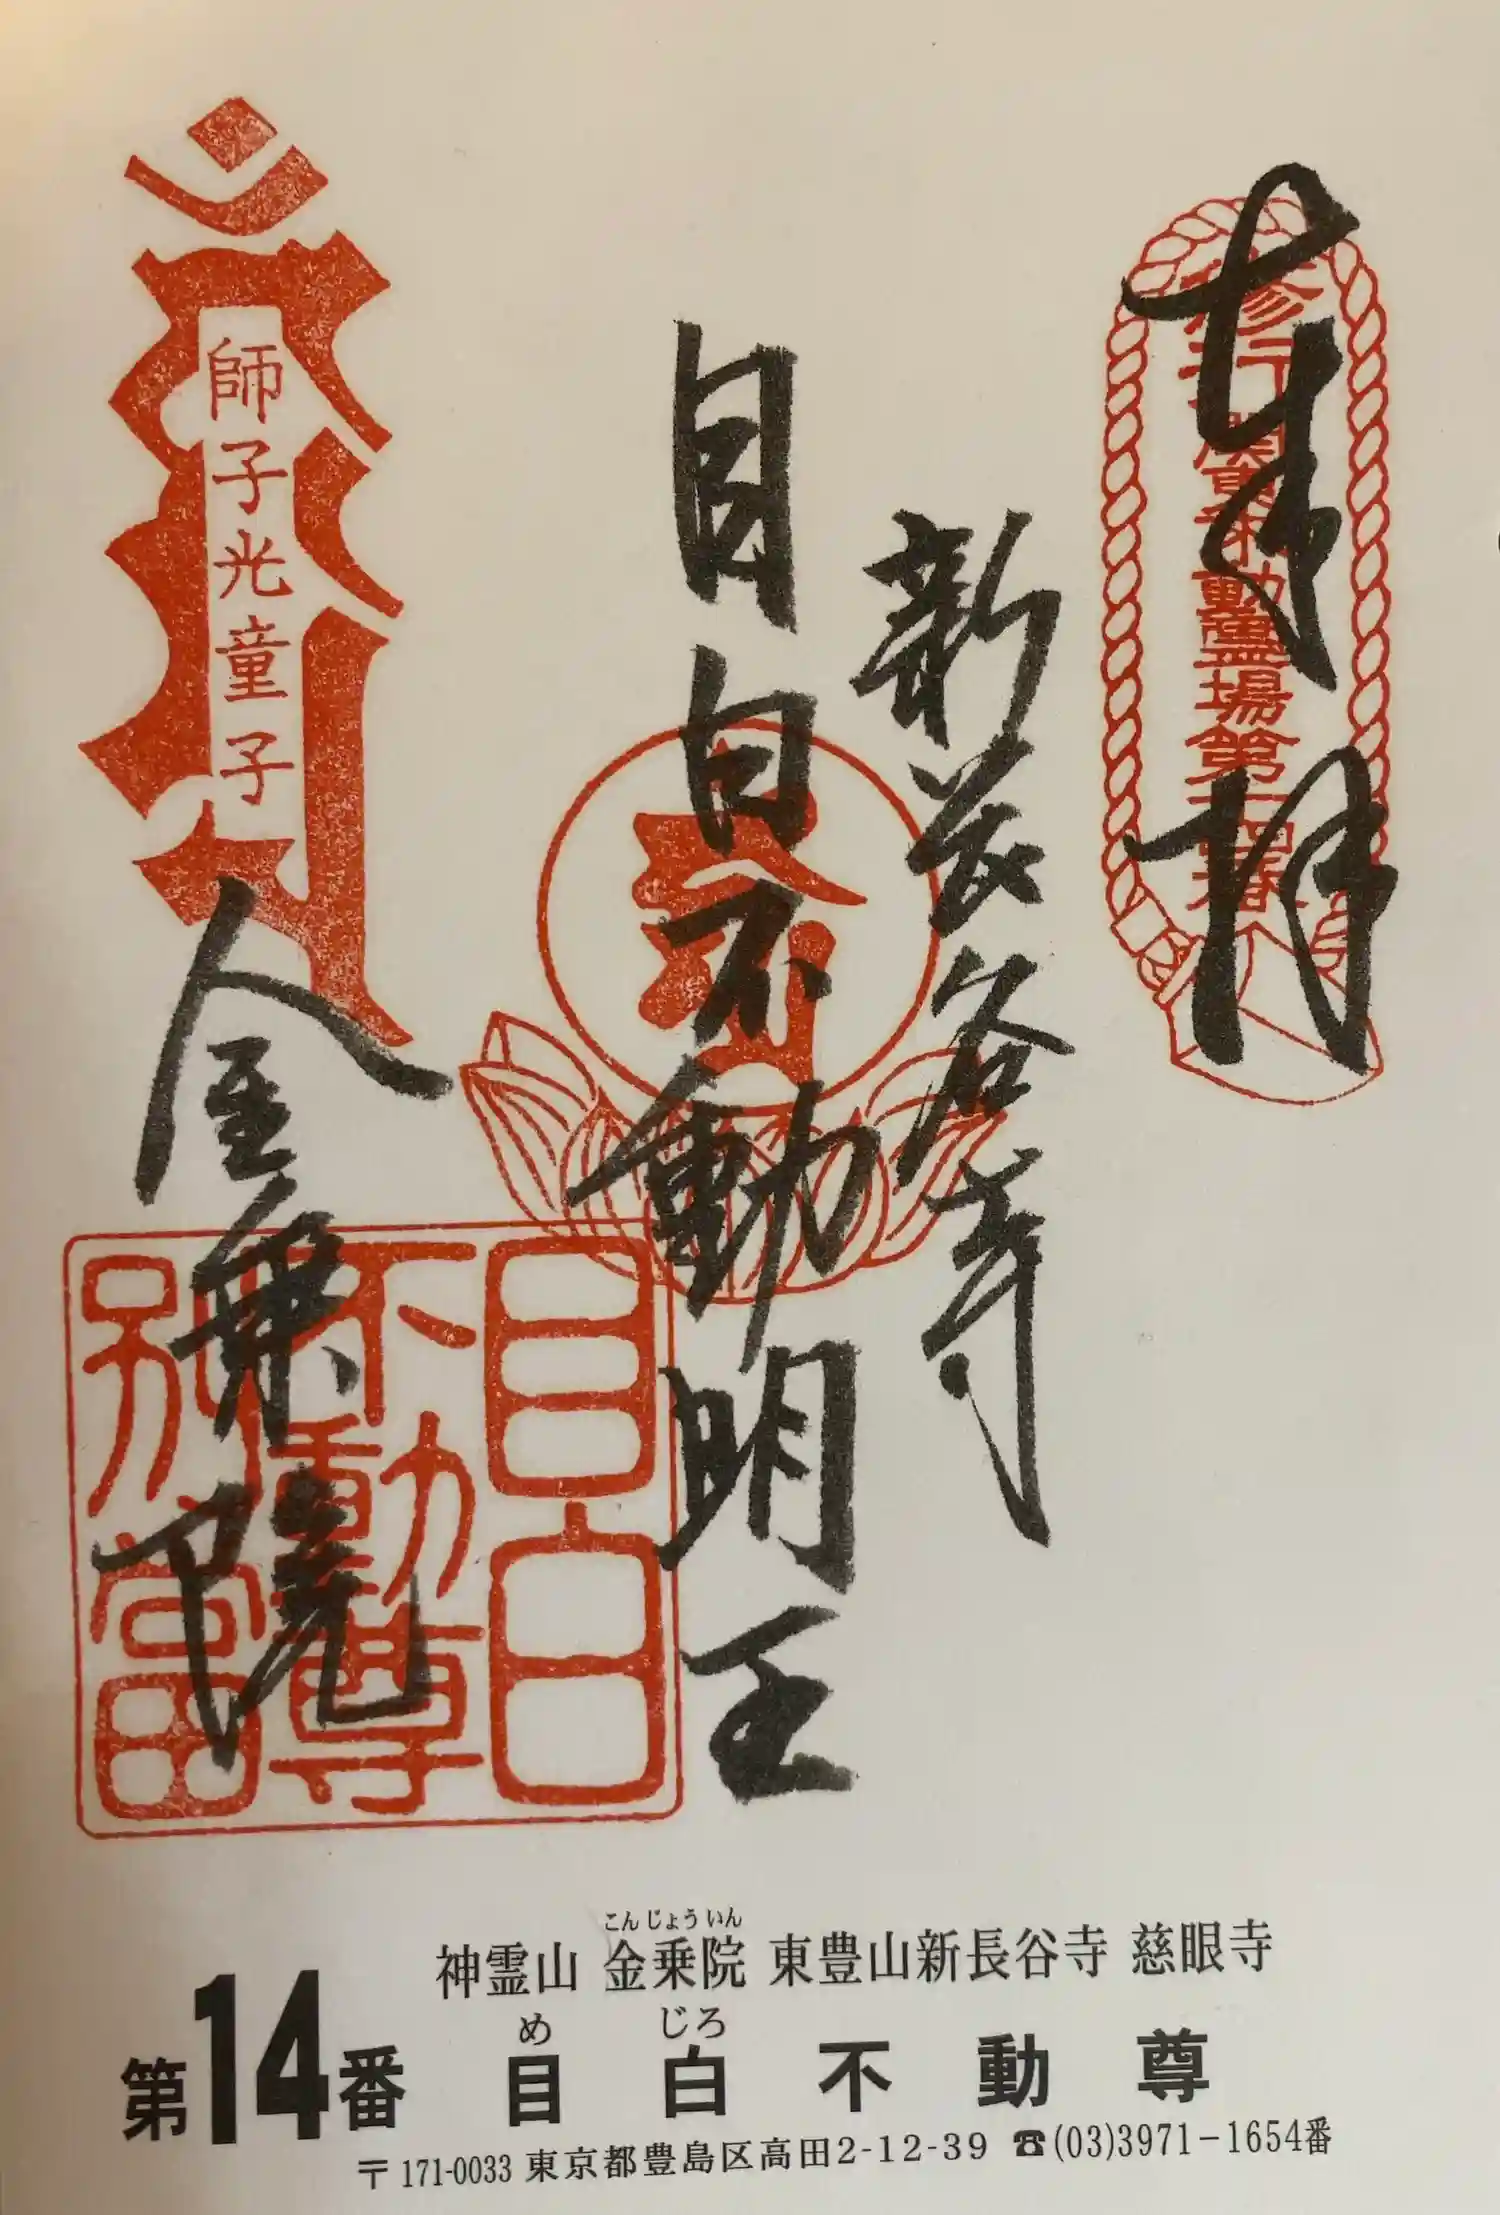 奉拝
修行 関東不動霊場第十四番
新長谷寺
目白不動明王
師子光童子
金乗院
目白
不動尊
別當
神霊山 金乗院 東豊山新長谷寺 慈眼寺
こんじょういん
第14番 目白不動尊
めじろ
〒171-0033 東京都豊島区高田2-12-39 ☎(03)3971-1654番